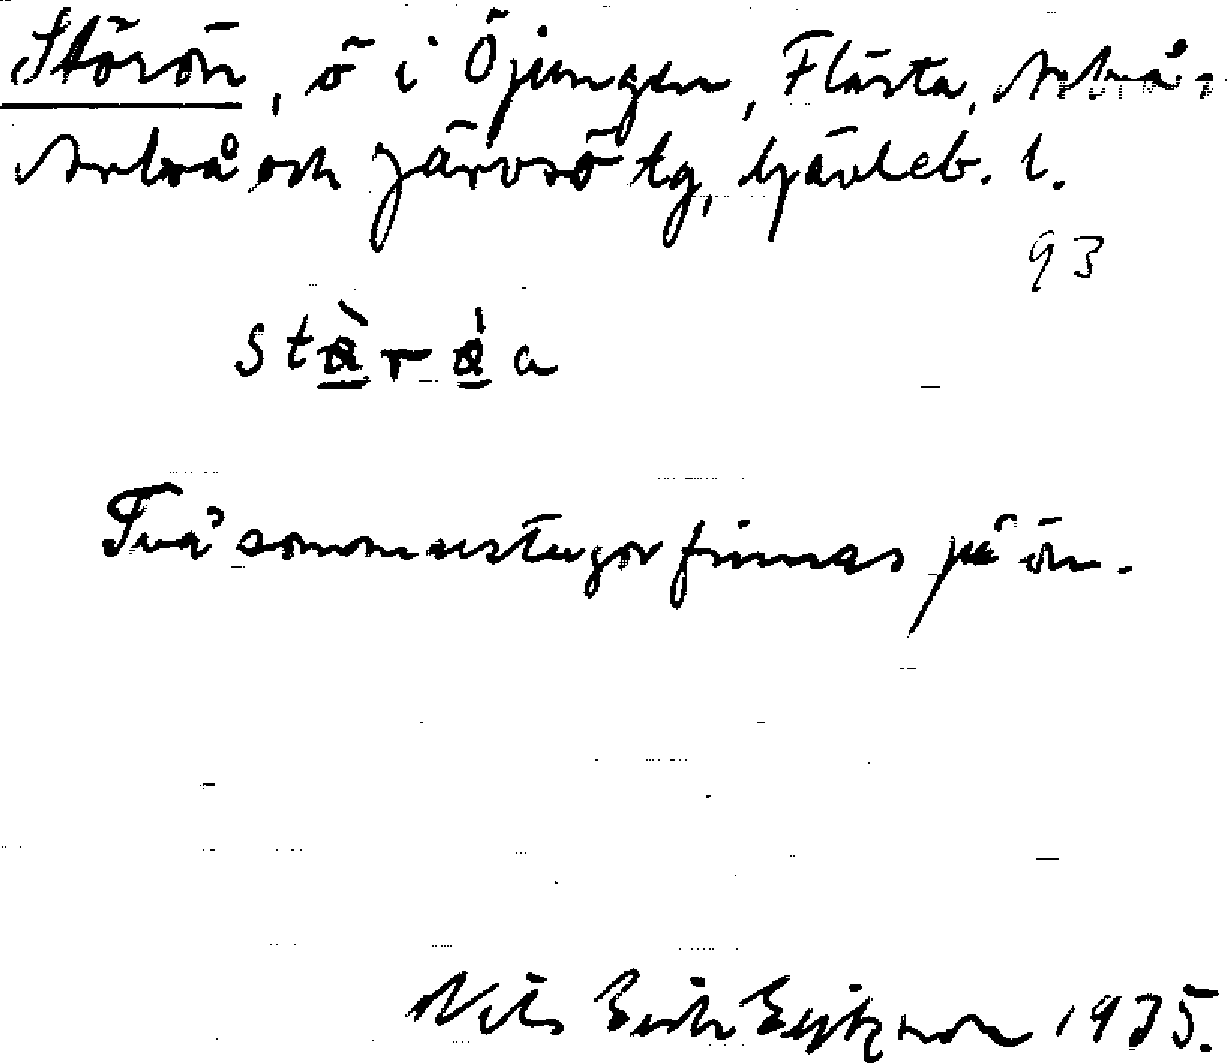 Störön, ö i Öjungen, Flästa, Arbrå,
Arbrå och Järvsö tg, Gävleb. l.
93
Två sommarstugor finnas på ön.
Nils Erik 1935.